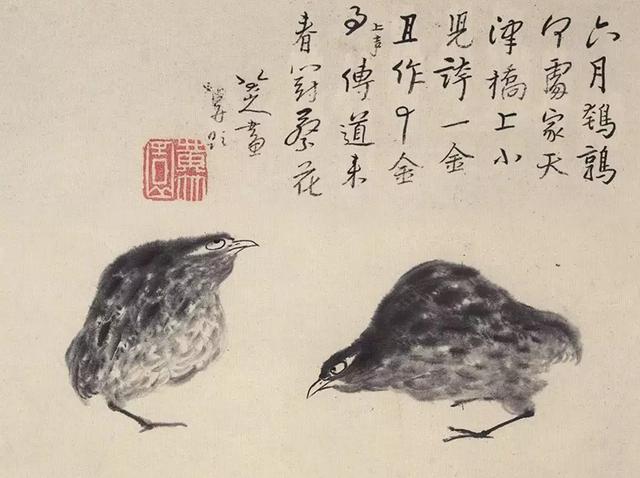 六月鵪鶉
何處家天
津橋上小
兒誇一金
且作十金
事傳道來
春鬥蔡花
八大山人畫
并題